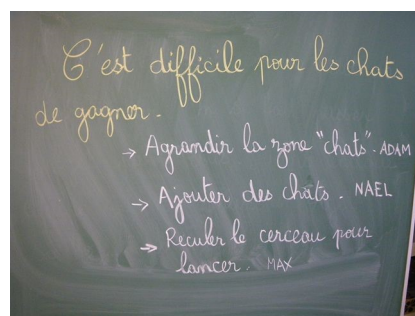 C'est difficile pour les chats
de gagner.
→ Agrandir la zone "chats". ADAM
→ Ajouter des chats. NAEL
→ Reculer le cerceau pour
lancer. MAX